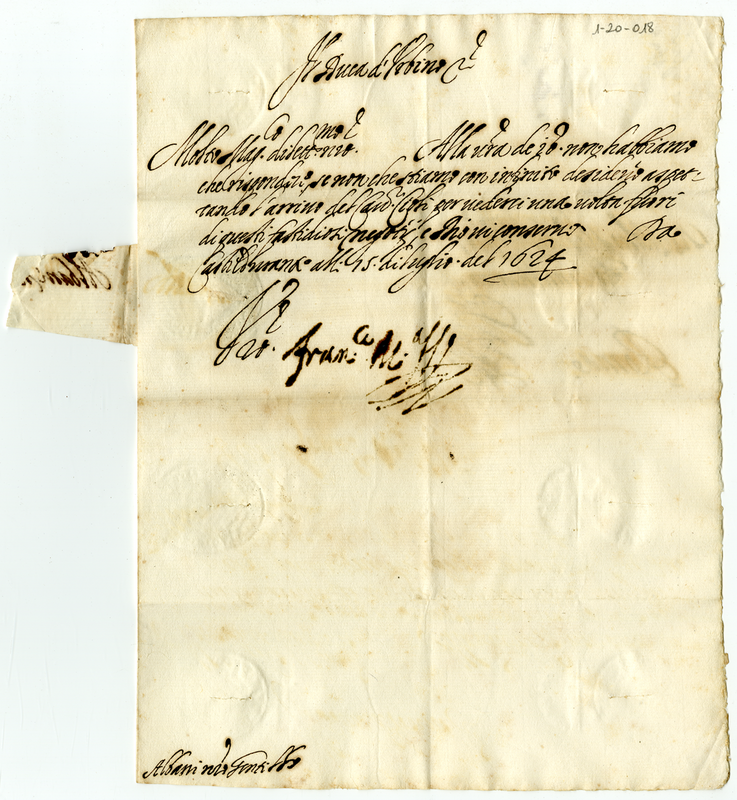 1-20-018
Il Duca d'Urbino &c
Molto Mag.co dilett.mo nro. Alla vra de 10. non habbiamo
che risponder, se non che stiamo con infinito desiderio aspet-
tando l'arrivo del Cav. per vederci una volta fuori
di questi fastidiosi negotij, e Dio vi conservi. Da
Casteldurante alli 15. di luglio. del 1624
Fran.co M.a
Albani nro Gentilho